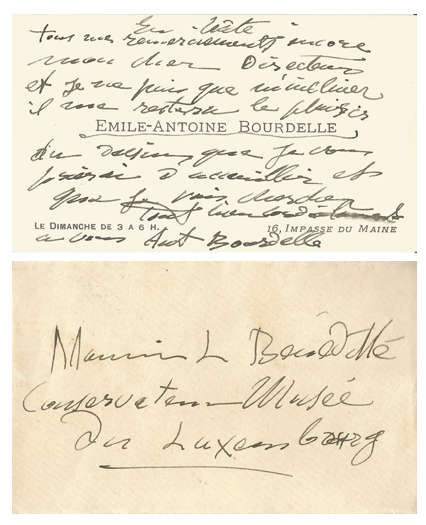 En hâte
tous mes remerciements encore
mon cher Directeur
et je ne puis que m'incliner
il me restera le plaisir
EMILE-ANTOINE BOURDELLE
du que je vous
d' et
que je vais chercher
Tout bien cordialement
LE DIMANCHE DE 3 A 6 H. 16, IMPASSE DU MAINE
à vous Ant Bourdelle
L Bénédite
Conservateur Musée
du Luxembourg